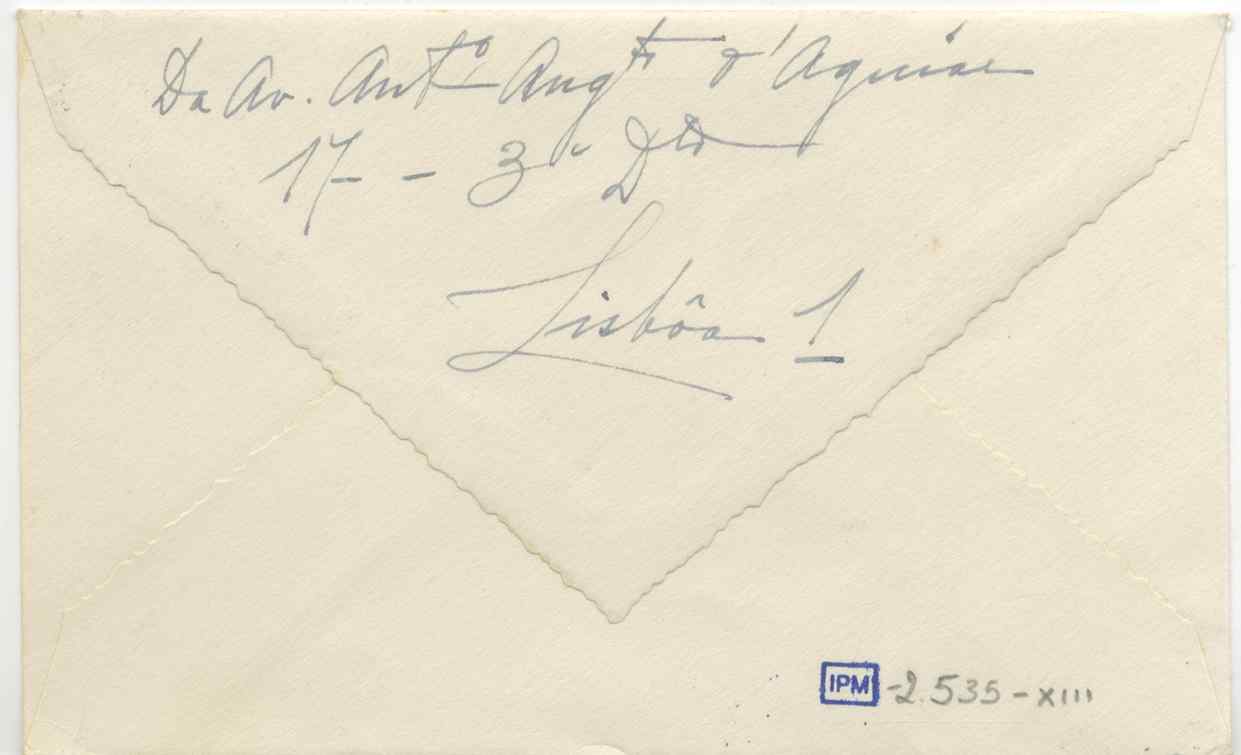 Da Av. Antº Angtº d'Aguiar
17 - 3º Dtº
Lisbôa 1
IPM -2.535-XIII